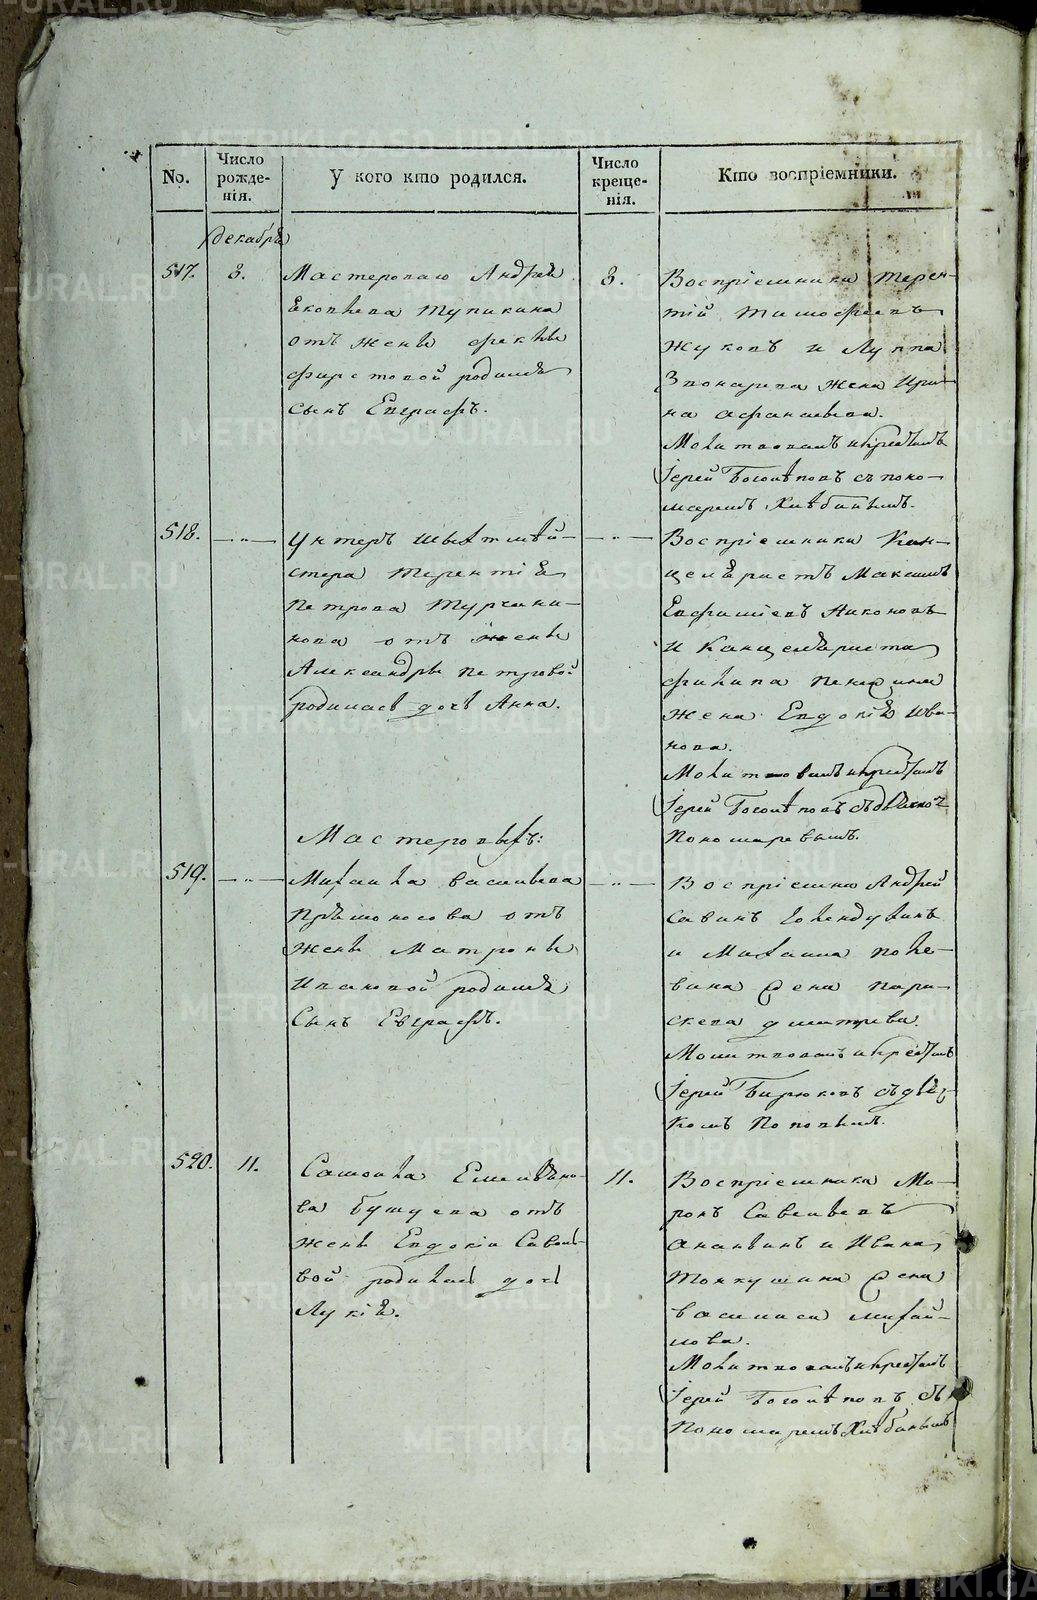 No.
Число рожде-нія.
У кого кто родился.
Число креще-нія.
Кто воспріемники.
декабря
517.
3.
Мастероваго Андрея
Тупикина
отъ жены Феклы
родился
сынъ Евграфъ.
3.
Воспріемники Терен-
тій Тимофеевъ
Жуковъ и Луппа
Звонарева жена Ири-
на Афанасьева.
Молитвовалъ и крестилъ
Іерей Боголѣповъ съ поно-
маремъ Хлѣбинымъ.
518.
Унтеръ Шихтмей-
стера Терентія
Петрова Турчани-
нова отъ жены
Александры Петровой
родилась дочь Анна.
Воспріемники Кан-
целяристъ Максимъ
Евфиміевъ Никоновъ
и Канцеляриста
Филипа
жена Евдокія Ива-
нова.
Молитвовалъ и крестилъ
Іерей Боголѣповъ съ дьячком
Пономаревымъ.
Мастеровыхъ:
519.
Михаила Васильева
Прямоносова отъ
жены Матроны
Ивановой родился
Сынъ Евграфъ.
Воспріемни Андрей
Савинъ
и Михаила Поле-
вина жена Пара-
скева Дмитрева.
Молитвовалъ и крестилъ
Іерей Бирюковъ съ дья-
комъ Поповымъ.
520.
11.
Самоила Емельяно-
ва Бушуева отъ
жены Евдокіи Савель-
вой родилась дочь
Лукія.
11.
Воспріемники Ми-
ронъ Савельевъ
Ананьинъ и Ивана
Тонкушина жена
Василиса Михай-
лова.
Молитвовалъ и крестилъ
Іерей Боголѣповъ съ
Пономаремъ Хлѣбинымъ
METRIKI.GASO-URAL.RU